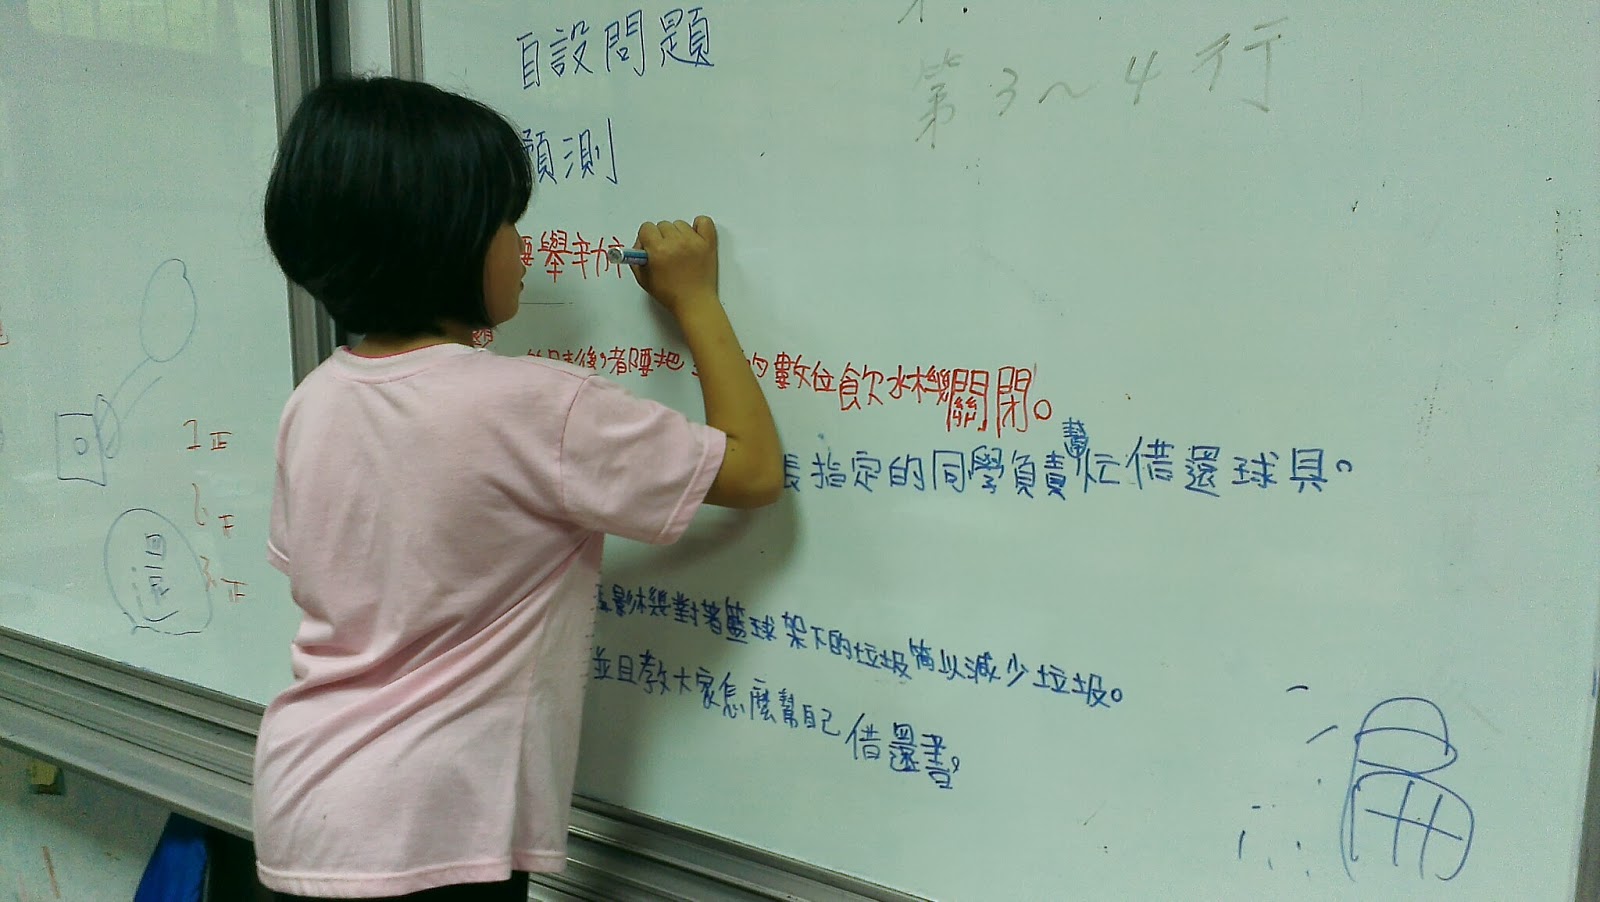 自設問題
預測
第3～4行
要舉辦
後,都要把 的數位飲水機關閉。
長指定的同學負責幫忙借還球具。
影機對著籃球架下的垃圾筒以減少垃圾。
並且教大家怎麼幫自己借還書,
1正
6正
3正
還